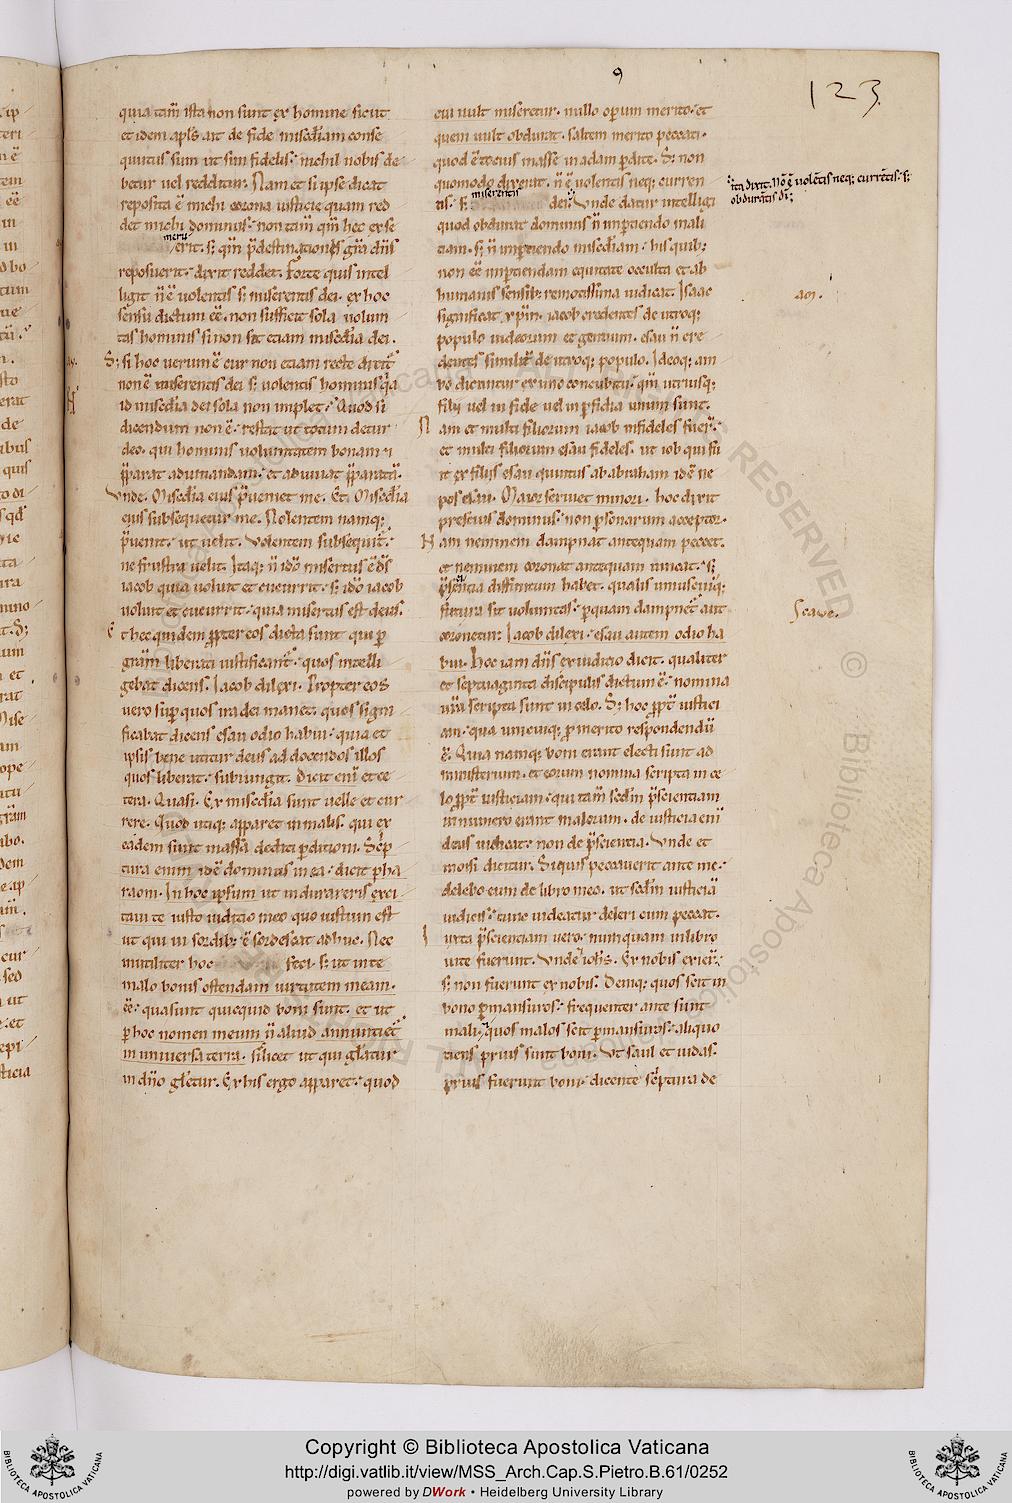 9
123
quia tam̄ ista non sunt ex homine sicut
et idem apl̄s ait de fide misedīam conse
quutus sum ut sim fidelis. nichil uobis de
betur uel redditur. Nam et si ipse dicat
reposita ē michi corona iusticie quam red
det michi dominus. non tam̄ qm̄ hec ex se
meru
erit. s; qm̄ p̄destinationis gr̄a dn̄s
reposuerit. dixit reddet. Forte quis intel
ligit n̄ ē uolentis s; miserentis dei. ex hoc
sensu dictum eē. non sufficit sola uolun
tas hominis si non sit etiam misedīa dei.
S; si hoc uerum ē cur non etiam recte dicit̄
non ē miserentis dei s; uolentis hominis q̄a
id misedīa dei sola non implet. Quod si
dicendum non ē. restat ut totum detur
deo. qui hominis uoluntatem bonam et
p̄parat adiuuandam. et adiuuat p̄paratā.
Vnde. Misedīa eius p̄ueniet me. Et. Misedīa
eius subsequetur me. Nolentem namq;
p̄uenit. ut uelit. Volentem subsequit̄.
ne frustra uelit. Itaq; n̄ idō misertus ē d̄s
iacob quia uoluit et cucurrit. s; idō iacob
uoluit et cucurrit. quia misertus est deus.
Et hec quidem ꝓpter eos dicta sunt qui p
grām liberati iustificant̄. quos intelli
gebat dicens. Iacob dilexi. Propter eos
uero sup quos ira dei manet. quos signi
ficabat dicens esau odio habui. quia et
ipsis bene utitur deus ad docendos illos
quos liberat. subiungit. Dicit eni et ce
tera. Quasi. Ex misedīa sunt uelle et cur
rere. Quod utiq; apparet in malis. qui ex
eadem sunt massa dedici pditioni. Scrip
tura enim idē dominus in ea. dicit pha
raoni. In hoc ipsum ut indurareris exci
taui te iusto iudicio meo quo iustum est
ut qui in sordib; ē sordescat adhuc. Nec
inutiliter hoc feci. s; ut in te
malo bonis ostendam uirtutem meam.
eē. quasunt quicquid boni sunt. et ut
p hoc nomen meum n̄ aliud annuntiet̄
in uniuersa terra. scilicet ut qui gl̄atur
in dn̄o gl̄etur. Ex his ergo apparet. quod
cui uult miseretur. nullo operum merito. et
quem uult obdurat. saltem merito peccati.
quod ē tocius masse in adam pdite. S; non
quomodo dixerat. n̄ ē uolentis neq; curren
tis. s; miserentis dei. Vnde datur intelligi
ita dixit. Nō ē uolētis neq; currētis. s;
obdurātis dī;
quod obdurat dominus n̄ inpertiendo mali
ciam. s; n̄ inpertiendo misedīam. his quib;
non eē inpertiendam equitate occulta et ab
humanis sensib; remotissima iudicat. Isaac
am.
significat xp̄m. iacob credentes de utroq;
populo iudeorum et gentium. esau n̄ cre
dentes similiter de utroq; populo. Ideoq; am
bo dicuntur ex uno concubitu. qm̄ utriusq;
filii uel in fide uel in pfidia unum sunt.
Nam et multi filiorum iacob infideles fuer̄.
et multi filiorum esau fideles. ut iob qui fu
it ex filiis esau. quintus ab abraham idē ne
pos esau. Maior seruiet minori. hoc dixit
prescius dominus. non psonarum acceptor.
Nam neminem dampnat antequam peccet.
et neminem coronat antequam uincat. s;
p̄scientia diffinitum habet. qualis uniuscuiq;
futura sit uoluntas. pquam dampnet̄ aut
Scawe.
coronetur. Iacob dilexi. esau autem odio ha
bui. Hoc iam dn̄s ex iudicio dicit. qualiter
et septuaginta discipulis dictum ē. nomina
ur̄a scripta sunt in celo. S; hoc ꝓpt̄ iustici
am. quia unicuiq; pro merito respondendū
ē. Quia namq; boni erant electi sunt ad
ministerium. et eorum nomina scripta in ce
lo ꝓpt̄ iusticiam. qui tam̄ sedm̄ p̄scientiam
in numero erant malorum. de iusticia eni
deus iudicat. non de p̄scientia. Vnde et
moisi dicitur. Siquis peccauerit ante me.
delebo eum de libro meo. ut sedm̄ iusticiā
iudicis. tunc uideatur deleri cum peccat.
Iuxta p̄scientiam uero. nunquam in libro
uite fuerunt. Vnde iohs̄. Ex nobis exier̄.
s; non fuerunt ex nobis. Deniq; quos scit in
bono pmansuros. frequenter ante sunt
mali. quos malos scit pmansuros. aliquo
tiens prius sunt boni. Vt saul et iudas.
prius fuerunt boni. dicente scriptura de
Copyright © Biblioteca Apostolica Vaticana
http://digi.vatlib.it/view/MSS_Arch.Cap.S.Pietro.B.61/0252
powered by DWork • Heidelberg University Library